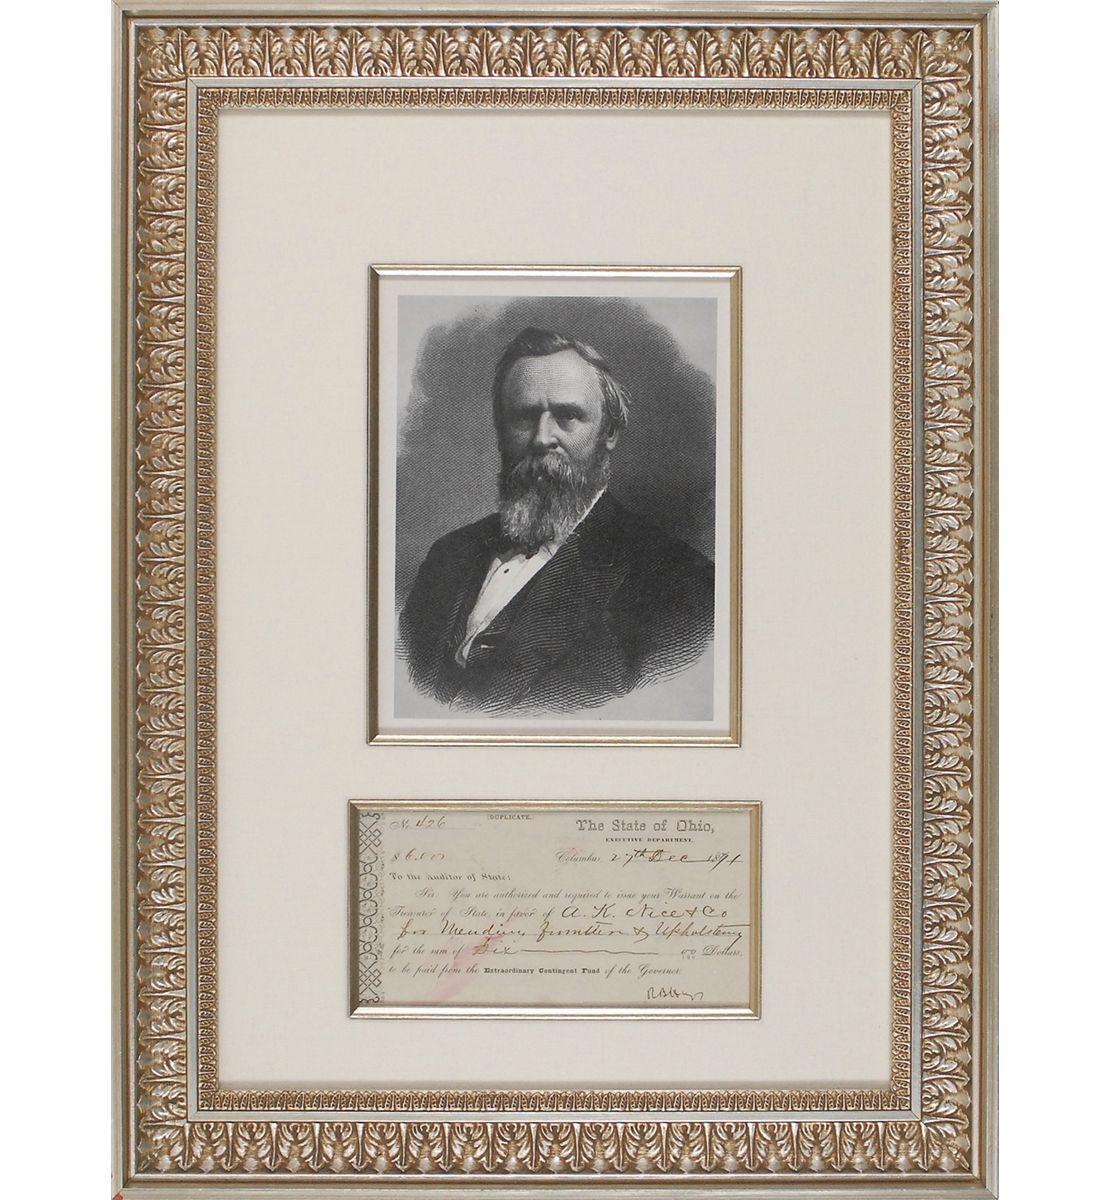 (DUPLICATE.)
No. 426
The State of Ohio,
EXECUTIVE DEPARTMENT,
$ 6.00
Columbus, 27th Dec 1871
To the Auditor of State:
Sir: You are authorized and required to issue your Warrant on the
Treasurer of State, in favor of A. K. Nice & Co
for Mending furniture & Upholstering
for the sum of Six 00/100 Dollars,
to be paid from the Extraordinary Contingent Fund of the Governor.
R B Hayes